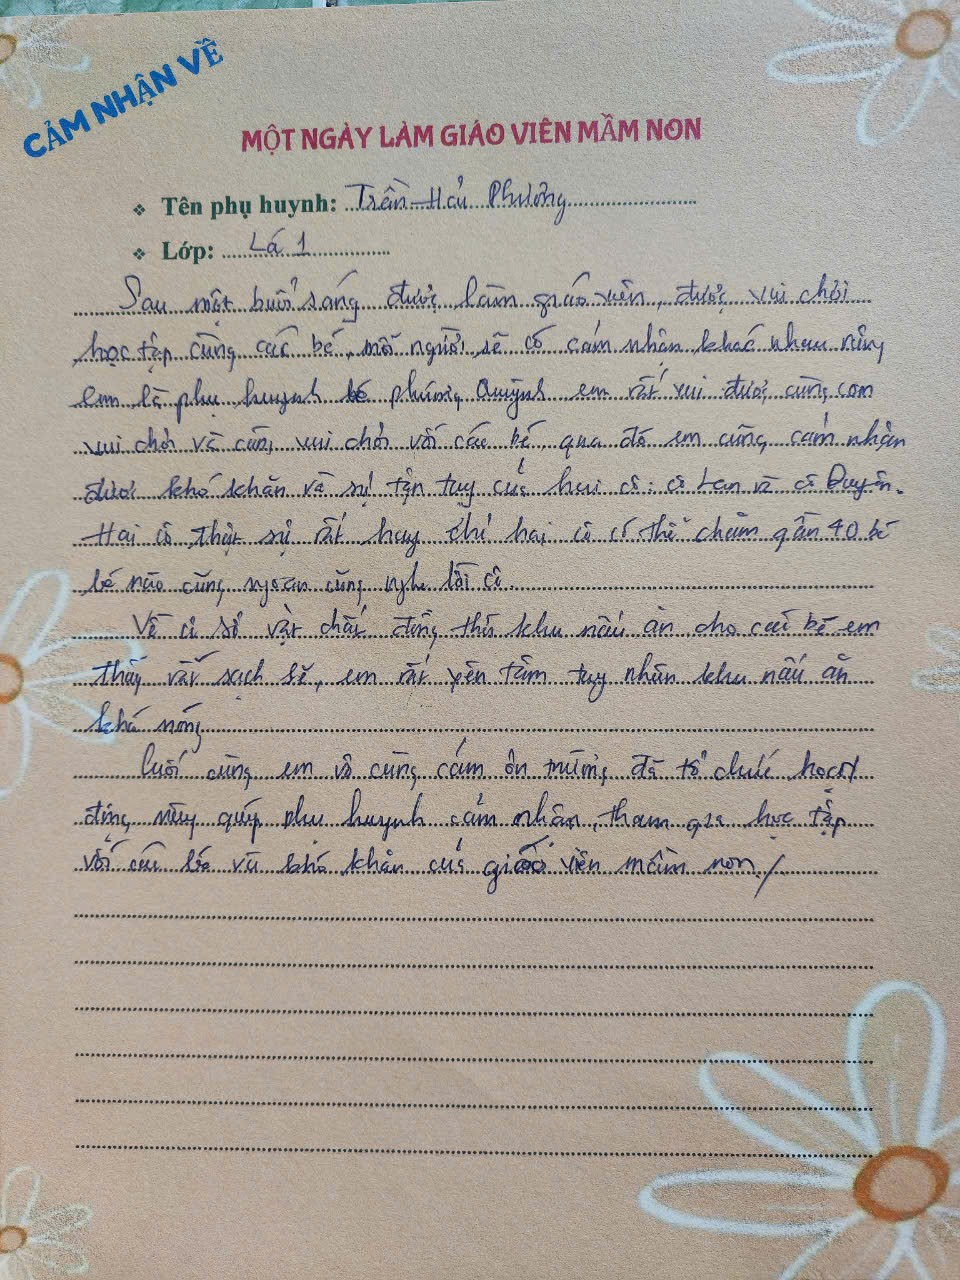 CẢM NHẬN VỀ
MỘT NGÀY LÀM GIÁO VIÊN MẦM NON
❖ Tên phụ huynh: Trần Hải Phương
❖ Lớp: Lá 1
Sau một buổi sáng được làm giáo viên, được vui chơi
học tập cùng các bé, mỗi người sẽ có cảm nhận khác nhau riêng
em là phụ huynh bé Phương Quỳnh em rất vui được cùng con
vui chơi và cùng vui chơi với các bé qua đó em cũng cảm nhận
được khó khăn và sự tận tụy của hai cô: cô Lan và cô Duyên.
Hai cô thật sự rất hay chỉ hai cô có thể chăm gần 40 bé
bé nào cũng ngoan cũng nghe lời cô.
Về cơ sở vật chất đồng thời khu nấu ăn cho các bé em
thấy rất sạch sẽ, em rất yên tâm tuy nhiên khu nấu ăn
khá nóng
Cuối cùng em vô cùng cảm ơn trường đã tổ chức
động này giúp phụ huynh cảm nhận, tham gia học tập
với các bé và khó khăn của giáo viên mầm non./